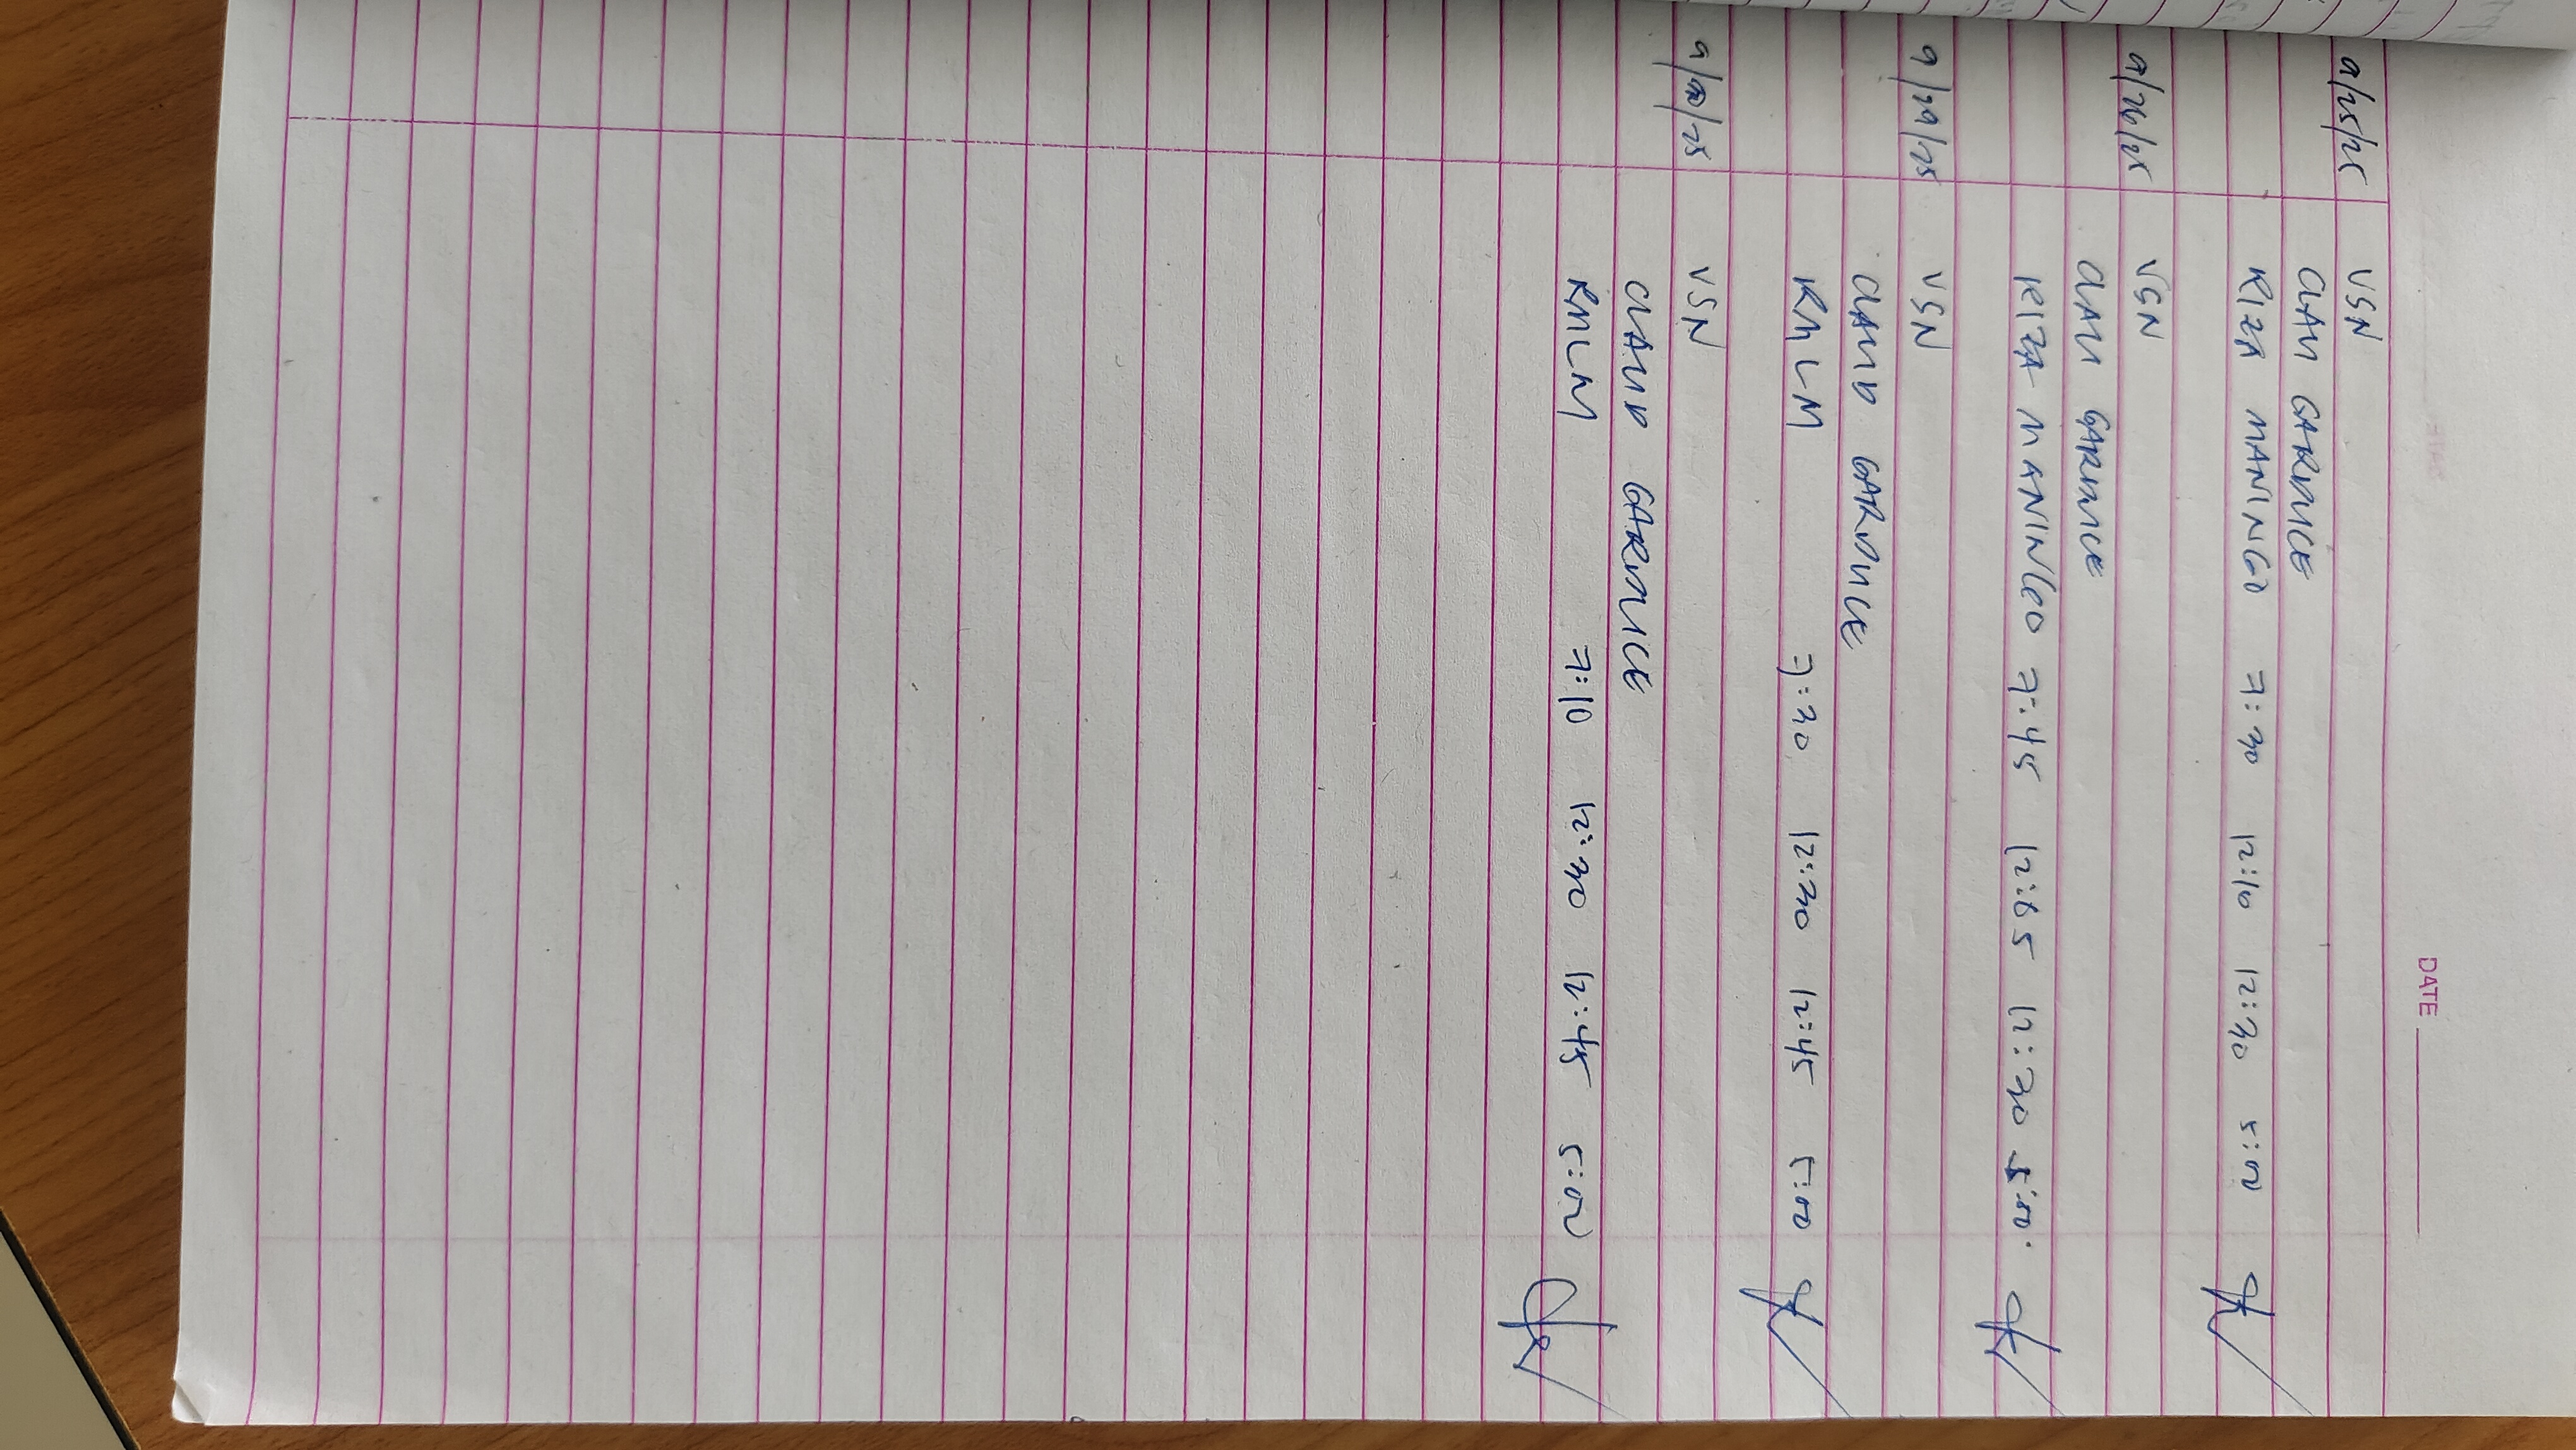 DATE
9/25/25 VSN
CLAU GARDUCE
RIZA MANINGO 7:30 12:10 12:30 5:00
9/26/25 VSN
CLAU GARDUCE
RIZA MANINGO 7:45 12:05 12:30 5:00.
9/29/25 VSN
CLAUD GARDUCE
RMLM 7:30 12:30 12:45 5:00
VSN
CLAUD GARDUCE
RMLM 7:10 12:30 12:45 5:00